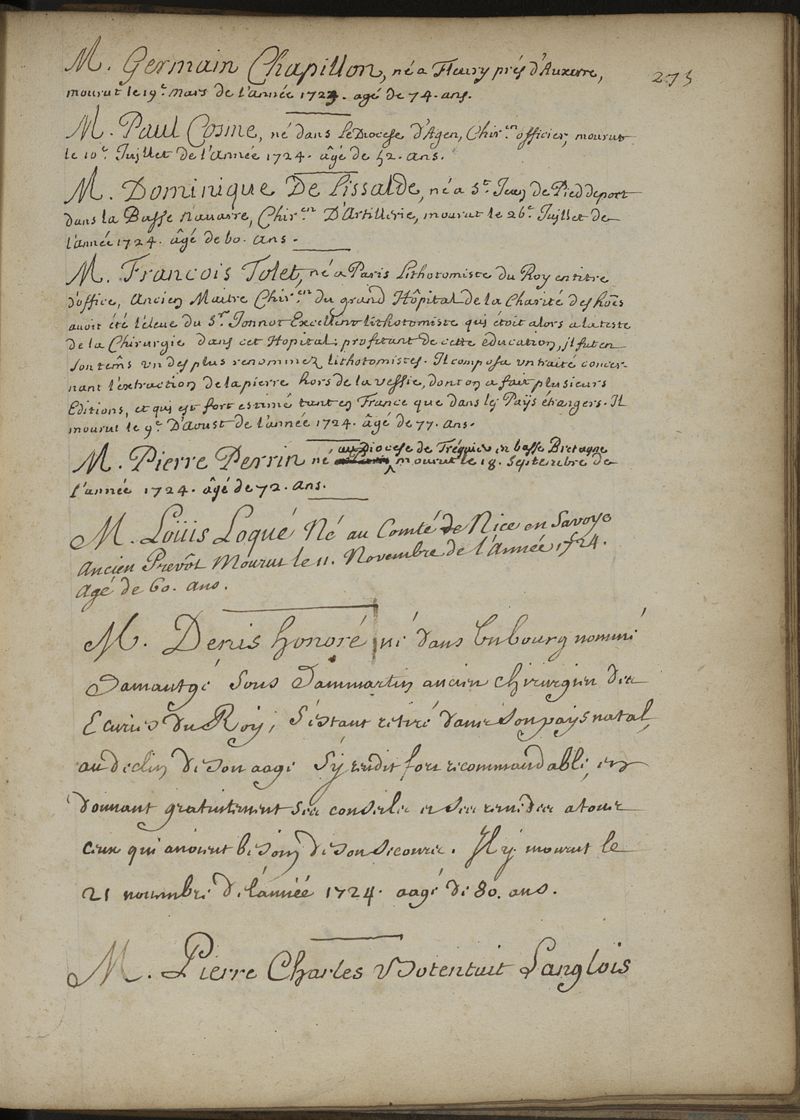 273
M. Germain Chapillon, né a Fleury prés d'Auxerre,
mourut le 19.e Mars de l'année 1724. agé de 74. ans.
M. Paul Cosme, né dans Le Diocese d'Agen, Chir.en officier, mourut
le 10.e Juillet de l'Année 1724. âgé de 52. ans.
M. Dominique De Lissalde, né a St. Jean de Pieddeport
dans la Basse Navarre, Chir.en D'Artillerie, mourut le 26.e Juillet de
l'année 1724. âgé de 60. ans.
M. Francois Tolet, né a Paris Lithotomiste du Roy en titre
d'office, Ancien Maitre Chir.en du grand Hôpital de la Charité des hoẽs
avoit été l'éleve du Sr. Jonnot Excellent lithotomiste qui étoit alors a la teste
de la Chirurgie dans cet Hopital; profitant de cette éducation, il fut en
son tems un des plus renommez lithotomistes. Il composa un traité concer-
nant l'extraction de la pierre hors de la vessie, dont on a fait plusieurs
Editions, et qui est fort estimé tant en France que dans les Païs étrangers. Il
mourut le 9.e D'Aoust de l'année 1724. âgé de 77. ans.
au Diocese de Tréguier en basse Bretagne
M. Pierre Perrin né mourut le 18. Septembre de
l'année 1724. âgé de 72. ans.
M. Loüis Loqué Né au Comté de Nice en Savoye
Ancien Prevôt Mourut le 11. Novembre de l'Année 1724.
Agé de 60. ans.
M. Denis honoré né dans Un bourg nommé
Damantgé sous Dammartin ancien chirurgien des
Ecuries Du Roy, S'éstant retiré dans son pays natal,
au declin de son aage S'y rendit fort recommandable, en
donnant gratuitement ses conseils et ses remedes a tous
ceux qui avoient besoin de son secours. Il y mourut le
21 novembre de l'année 1724. aagé de 80. ans.
M. Pierre Charles Botentuit Langlois